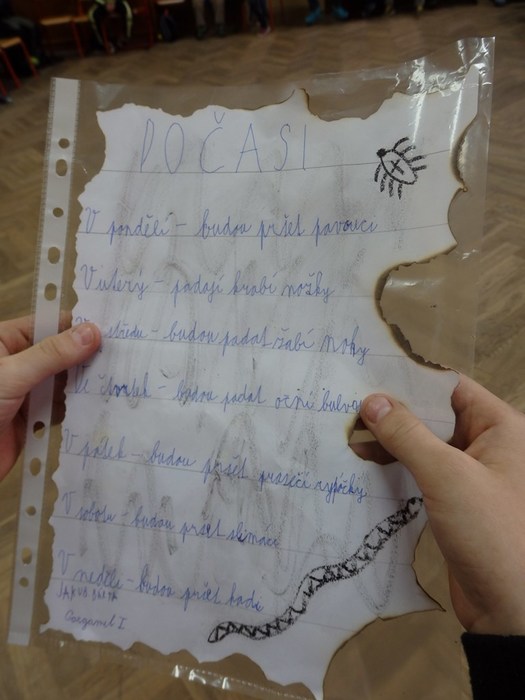 POČASI
V pondělí - budou pršet pavouci
V úterý - padají krabí nožky
Ve středu - budou padat žabí nohy
Ve čtvrtek - budou padat oční bulvy
V pátek - budou pršet prasečí rypáčky
V sobotu - budou pršet slimáci
V neděli - budou pršet hadi
Gargamel I